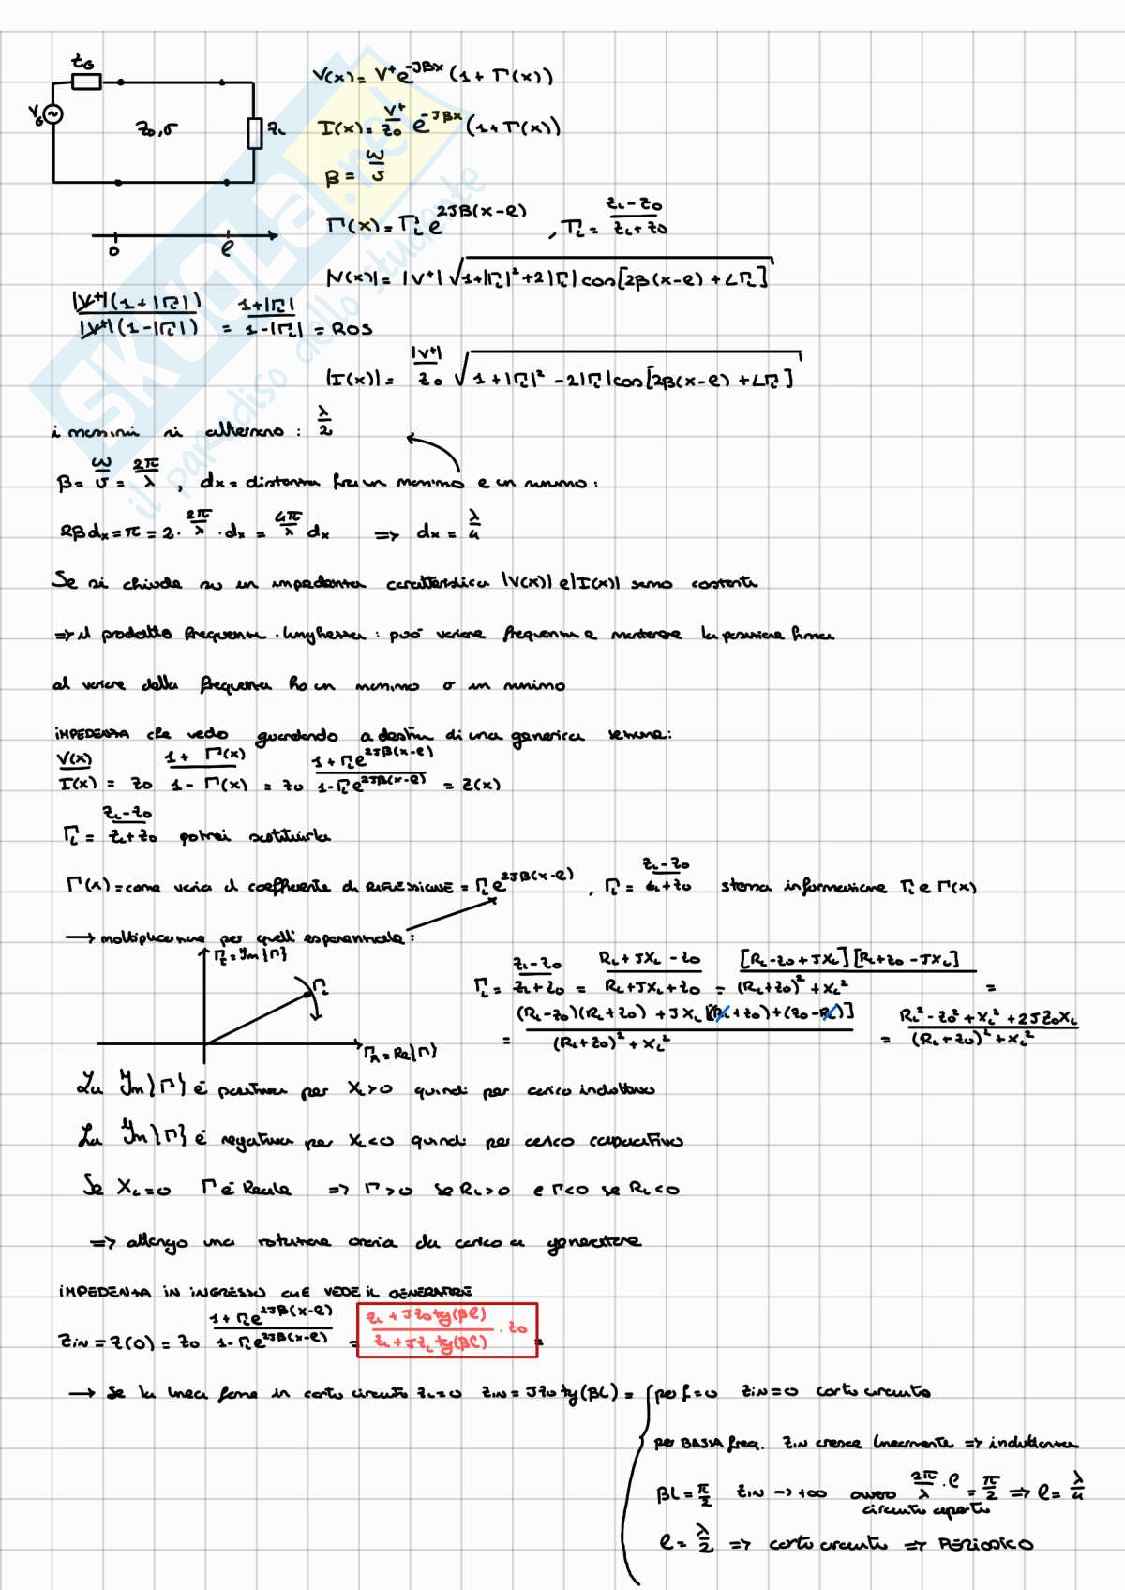 ZG
VG
Z0, σ
ZL
0
ℓ
V(x) = V⁺e^-Jβx (1 + Γ(x))
I(x) = V⁺/Z0 e^-Jβx (1 + Γ(x))
β = ω/σ
Γ(x) = ΓL e^2Jβ(x-ℓ) , ΓL = (ZL - Z0)/(ZL + Z0)
|V(x)| = |V⁺| √(1+|ΓL|² + 2|ΓL| cos[2β(x-ℓ) + ∠ΓL])
|V⁺|(1+|ΓL|) / |V⁺|(1-|ΓL|) = (1+|ΓL|)/(1-|ΓL|) = ROS
|I(x)| = |V⁺|/Z0 √(1+|ΓL|² - 2|ΓL| cos[2β(x-ℓ) + ∠ΓL])
i massimi si alternano : λ/2
β = ω/σ = 2π/λ , dx = distanza fra un massimo e un minimo :
2βdx = π = 2 · 2π/λ · dx = 4π/λ dx => dx = λ/4
Se si chiude su un impedenza caratteristica |V(x)| e |I(x)| sono costanti
=> il prodotto frequenza · lunghezza : può variare frequenza e mantenere la posizione fissa
al variare della frequenza ho un massimo o un minimo
IMPEDENZA che vedo guardando a destra di una generica sezione :
V(x)/I(x) = Z0 (1 + Γ(x))/(1 - Γ(x)) = Z0 (1 + ΓL e^2Jβ(x-ℓ))/(1 - ΓL e^2Jβ(x-ℓ)) = Z(x)
ΓL = (ZL - Z0)/(ZL + Z0) potrei sostituirla
Γ(x) = come varia il coefficiente di RIFLESSIONE = ΓL e^2Jβ(x-ℓ) , ΓL = (ZL - Z0)/(ZL + Z0) stessa informazione ΓL e Γ(x)
→ moltiplicazione per quell' esponenziale :
ΓI = Im{Γ}
ΓL
ΓR = Re{Γ}
ΓL = (ZL - Z0)/(ZL + Z0) = (RL + JXL - Z0)/(RL + JXL + Z0) = [RL - Z0 + JXL][RL + Z0 - JXL]/((RL + Z0)² + XL²) =
= ((RL - Z0)(RL + Z0) + JXL[(RL + Z0) + (Z0 - RL)])/((RL + Z0)² + XL²) = (RL² - Z0² + XL² + 2JZ0XL)/((RL + Z0)² + XL²)
La Im{Γ} è positiva per XL>0 quindi per carico induttivo
La Im{Γ} è negativa per XL<0 quindi per carico capacitivo
Se XL=0 Γ è Reale => Γ>0 se RL>0 e Γ<0 se RL<0
=> ottengo una rotazione oraria da carico a generatore
IMPEDENZA IN INGRESSO CHE VEDE IL GENERATORE
ZIN = Z(0) = Z0 (1 + ΓL e^2Jβ(x-ℓ))/(1 - ΓL e^2Jβ(x-ℓ)) = (ZL + JZ0 tg(βℓ))/(ZL + JZL tg(βℓ)) · Z0 =
→ Se la linea fosse in corto circuito ZL=0 ZIN = JZ0 tg(βL) = { per f=0 ZIN=0 corto circuito
per BASSA freq. ZIN cresce linearmente => induttanza
βL = π/2 ZIN → +∞ ovvero 2π/λ · ℓ = π/2 => ℓ = λ/4
circuito aperto
ℓ = λ/2 => corto circuito => PERIODICO
SKUOLA.net
il paradiso dello studente